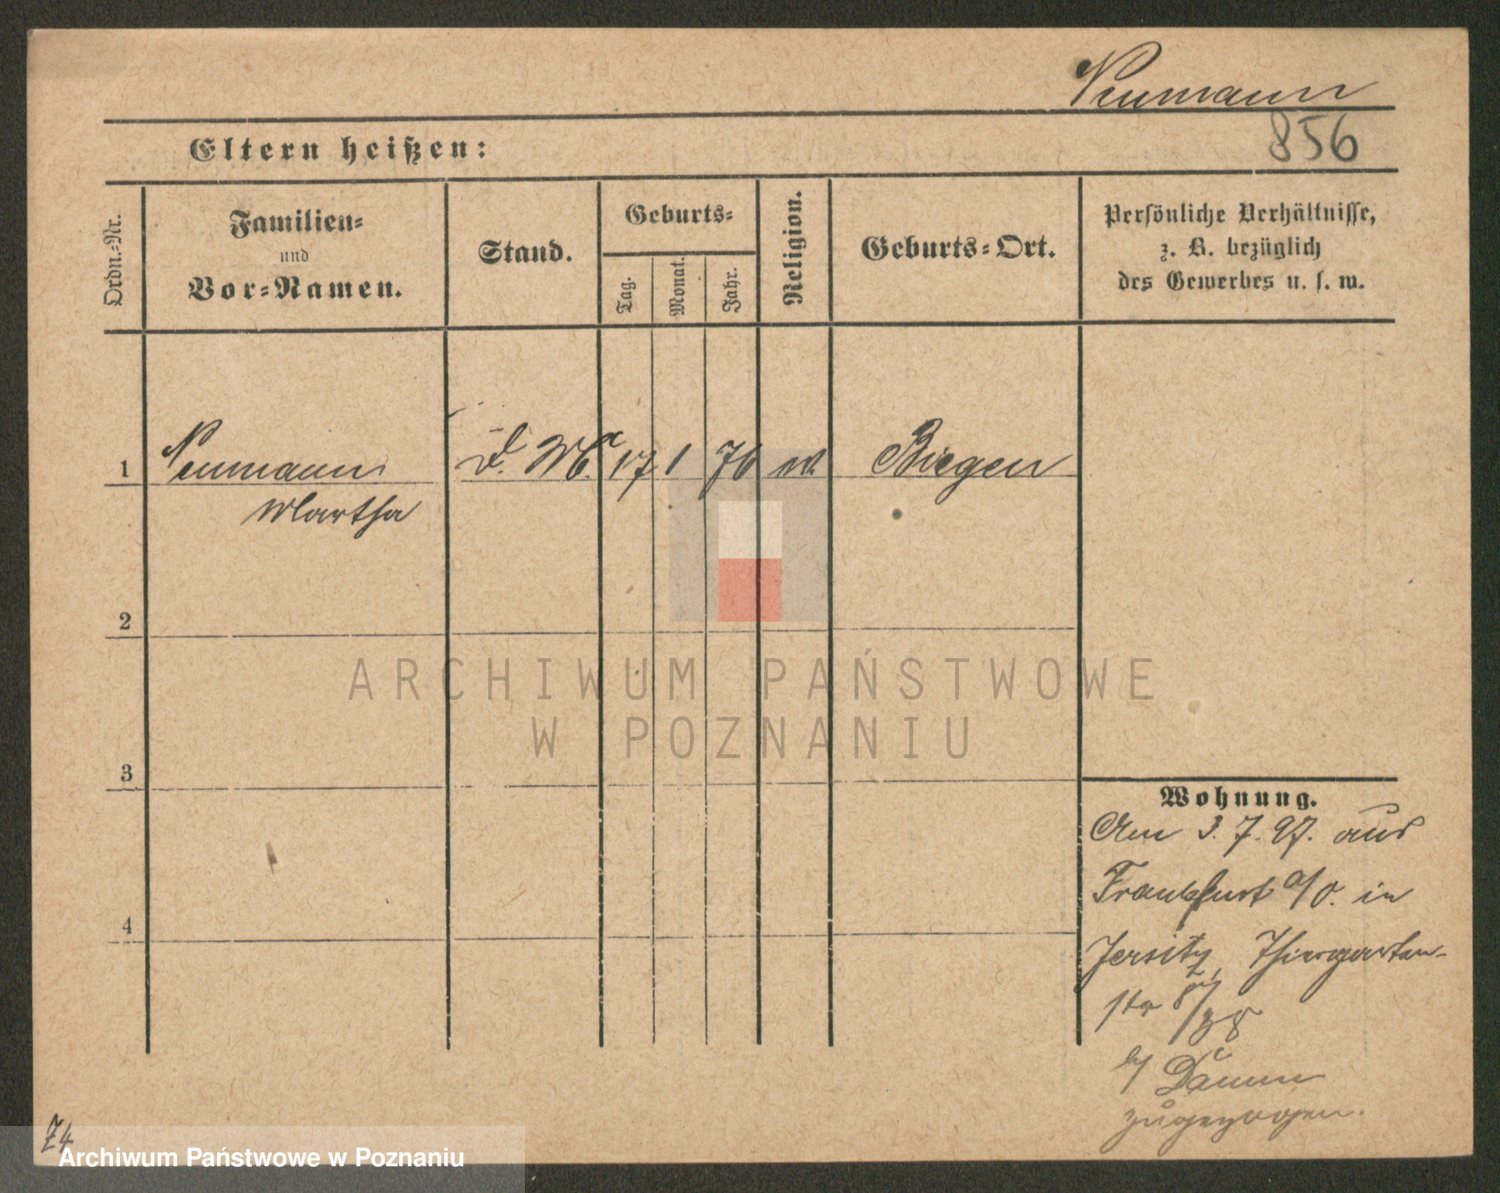 Neumann
856
Eltern heißen:
Ordn.-Nr.
Familien-
und
Vor-Namen.
Stand.
Geburts-
Tag.
Monat.
Jahr.
Religion.
Geburts-Ort.
Persönliche Verhältnisse,
z. B. bezüglich
des Gewerbes u. s. w.
1 Neumann D. M. 17 1 76 Biegen
Martha
2
3
4
Wohnung.
Am 3. 7. 97. aus
Frankfurt a/O. in
Jersitz, Thiergarten-
str 8/
b/ Damm
zugezogen.
74
ARCHIWUM PAŃSTWOWE
W POZNANIU
Archiwum Państwowe w Poznaniu